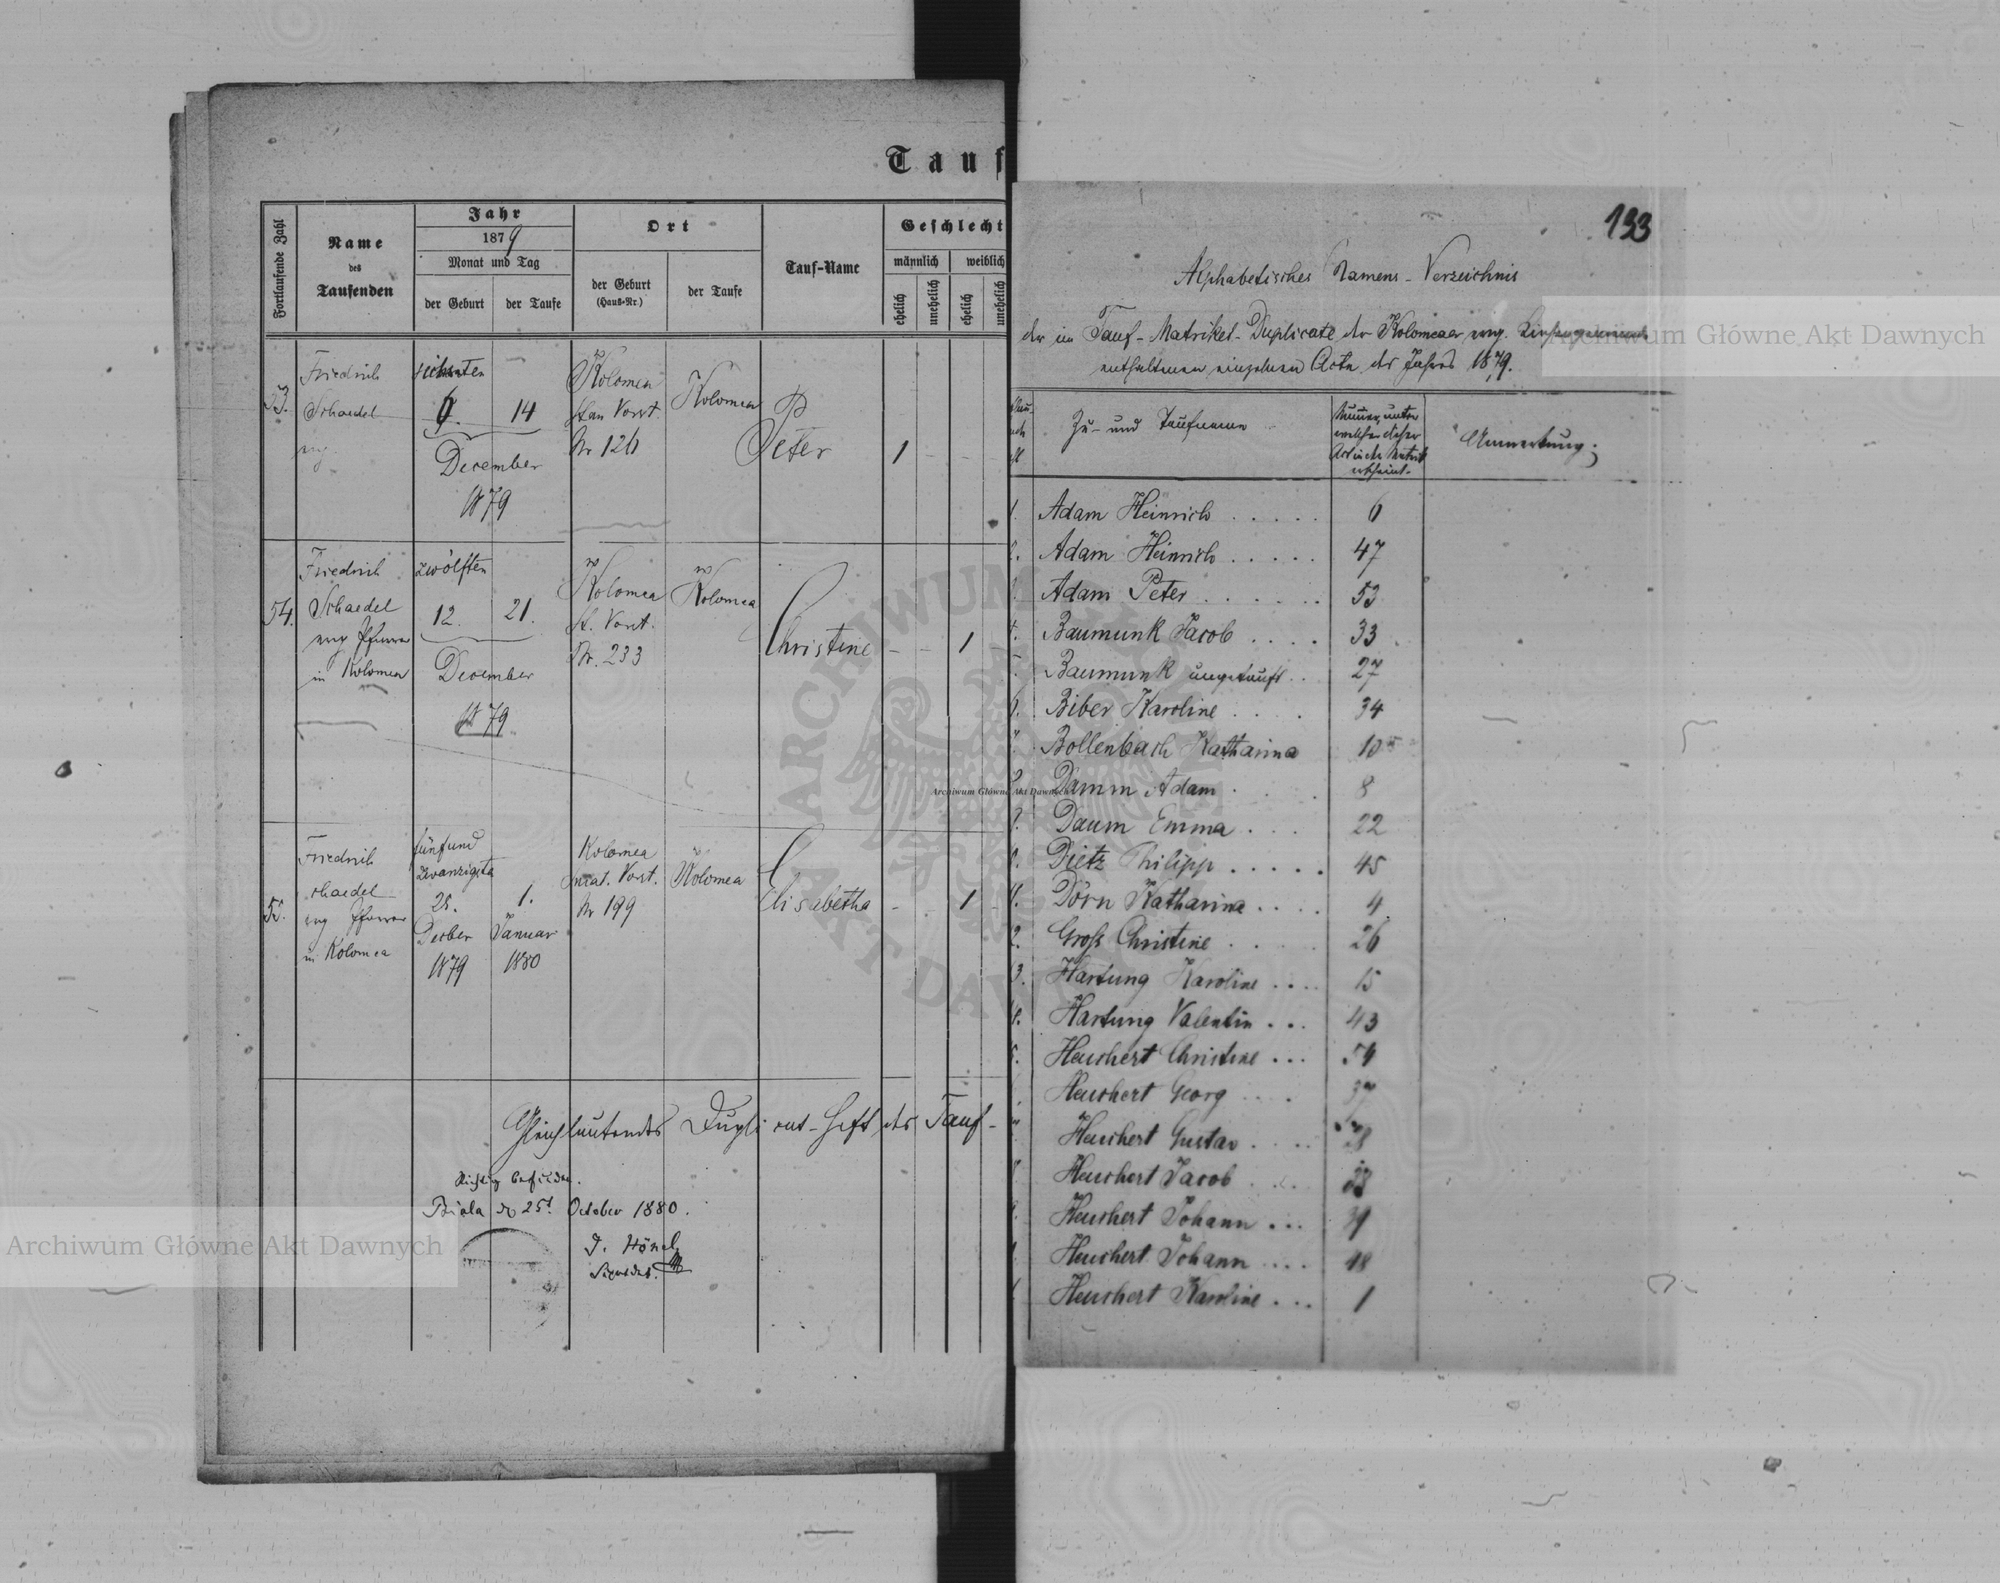 Tauf
Fortlaufende Zahl
Name
des
Taufenden
Jahr
1879
Monat und Tag
der Geburt
der Taufe
Ort
der Geburt
(Haus-Nr.)
der Taufe
Tauf-Name
Geschlecht
männlich
weiblich
ehelich
unehelich
ehelich
unehelich
53.
Friedrich
Schaedel
ev.
sechsten
6.
14
December
1879
Kolomea
Vorst.
Nr 126
Kolomea
Peter
1
54.
Friedrich
Schaedel
evg Pfarrer
in Kolomea
zwölften
12.
21.
December
1879
Kolomea
Vorst.
Nr. 233
Kolomea
Christine
1
55.
Friedrich
Schaedel
evg Pfarrer
in Kolomea
fünfund
zwanzigste
25.
1.
Decber
Januar
1879
1880
Kolomea
Vorst.
Nr 199
Kolomea
Elisabetha
1
Gleichlautendes Duplicat-Heft der Tauf-
Richtig befunden.
Biala d. 25t. October 1880.
J. Hönel
Archiwum Główne Akt Dawnych
133
Alphabetisches Namens-Verzeichnis
der im Tauf-Matrikel-Duplicate der Kolomeaer evg.
enthaltenen einzelnen Acte des Jahres 1879.
Zu- und Taufname
Numer, unter
welcher dieser
Act in der Matrik
erscheint.
Anmerkung
Adam Heinrich . . . . . 6
Adam Heinrich . . . . . 47
Adam Peter . . . . . . 53
Baumunk Jacob . . . . 33
Baumunk ungetauft . . 27
Biber Karoline . . . . 34
Bollenbach Katharina 10
Damm Adam . . . . 8
Daum Emma . . . 22
Dietz Philipp . . . . . 45
Dörn Katharina . . . . 4
Groß Christine . . . . . 26
Hartung Karoline . . . . 15
Hartung Valentin . . . 43
Heuchert Christine . . . 54
Heuchert Georg . . . . 37
Heuchert Gustav . . . . 28
Heuchert Jacob . . . . 38
Heuchert Johann . . . 39
Heuchert Johann . . . . 18
Heuchert Karoline . . . 1
Archiwum Główne Akt Dawnych
Archiwum Główne Akt Dawnych
ARCHIWUM
AKT DAWNYCH